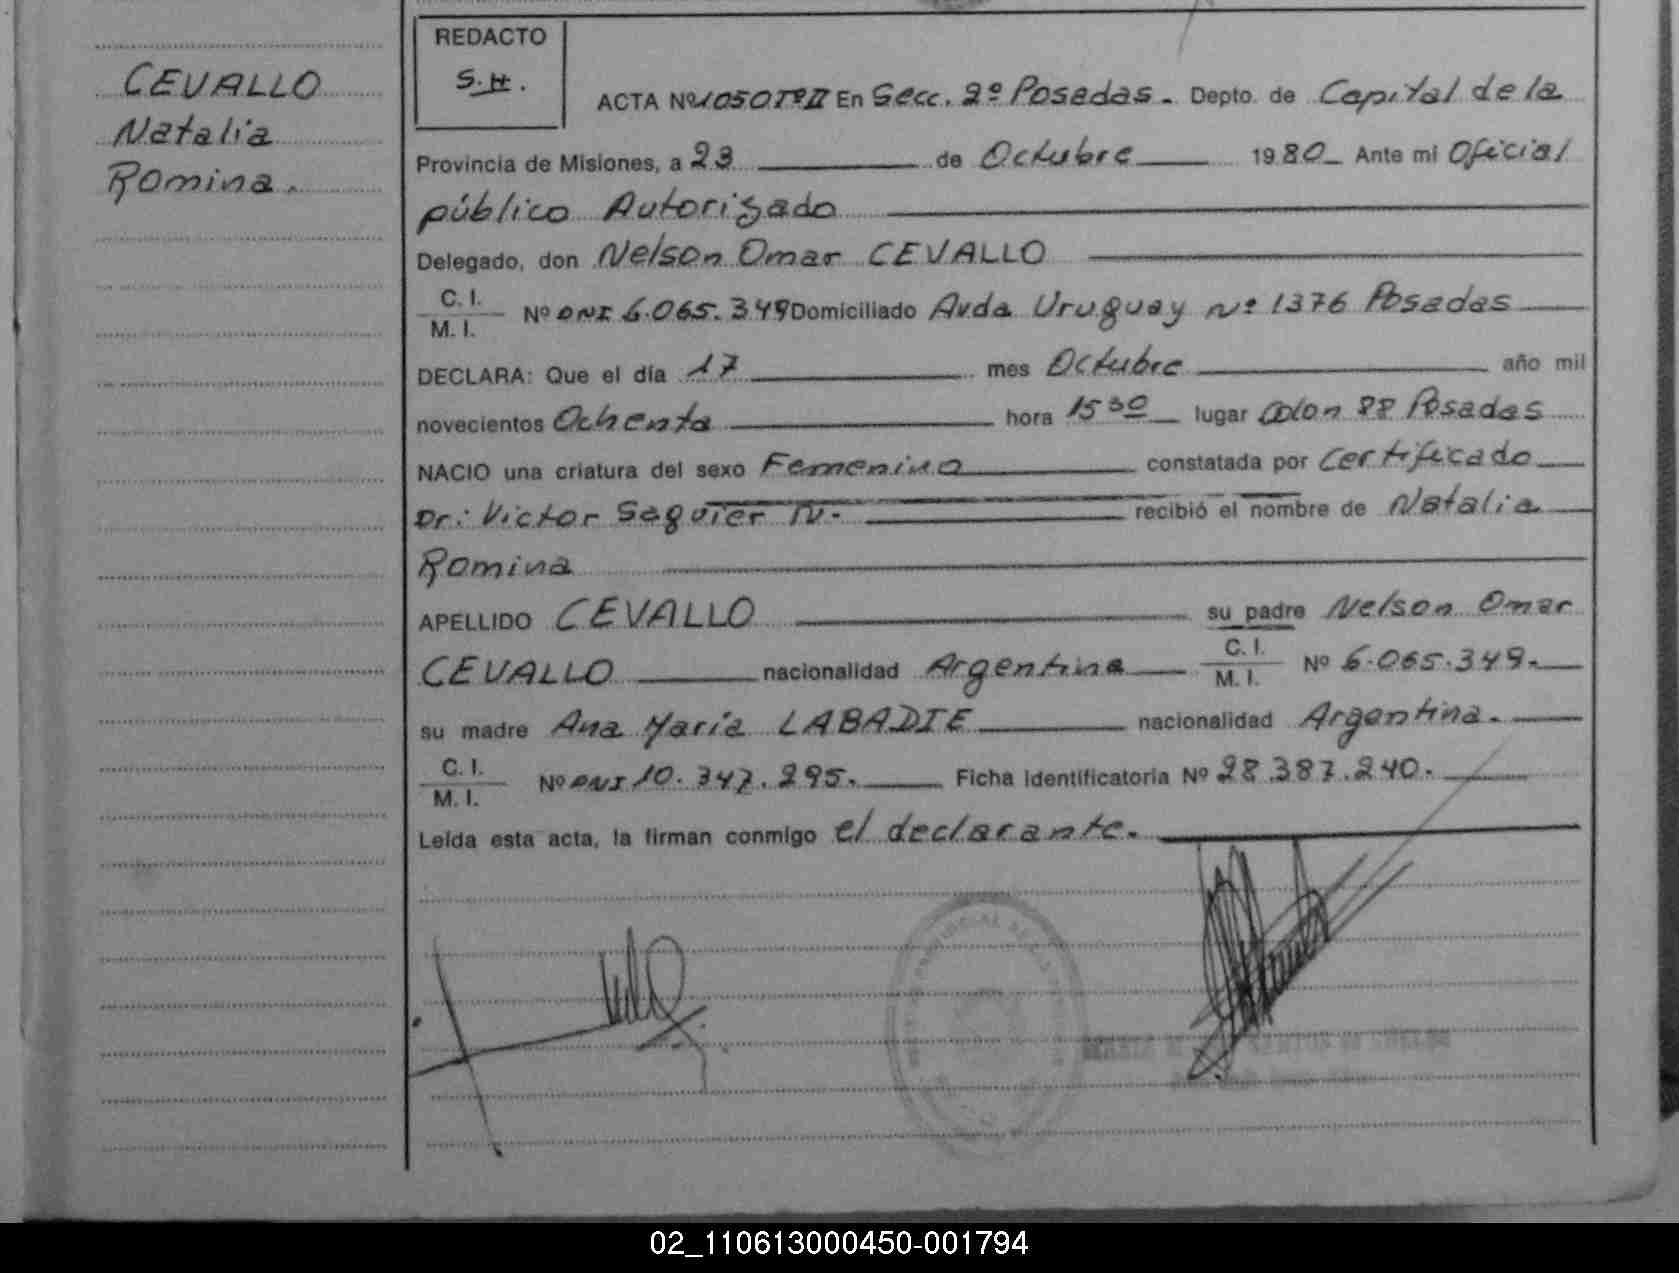 CEVALLO
Natalia
Romina.
REDACTO
S.H.
ACTA Nº 1050 Tº II En Secc. 2º Posadas. Depto. de Capital de la
Provincia de Misiones, a 23 de Octubre 1980 Ante mi Oficial
público Autorizado
Delegado, don Nelson Omar CEVALLO
C. I.
M. I. Nº DNI 6.065.349 Domiciliado Avda Uruguay nº 1376 Posadas
DECLARA: Que el día 17 mes Octubre año mil
novecientos Ochenta hora 15 30 lugar Colon Posadas
NACIO una criatura del sexo Femenino constatada por Certificado
Dr: Victor Seguier N. recibió el nombre de Natalia
Romina
APELLIDO CEVALLO su padre Nelson Omar
CEVALLO nacionalidad Argentina C. I. M. I. Nº 6.065.349.
su madre Ana María LABADIE nacionalidad Argentina.
C. I.
M. I. Nº DNI 10.347.295. Ficha Identificatoria Nº 28.387.240.
Leída esta acta, la firman conmigo el declarante.
02_110613000450-001794